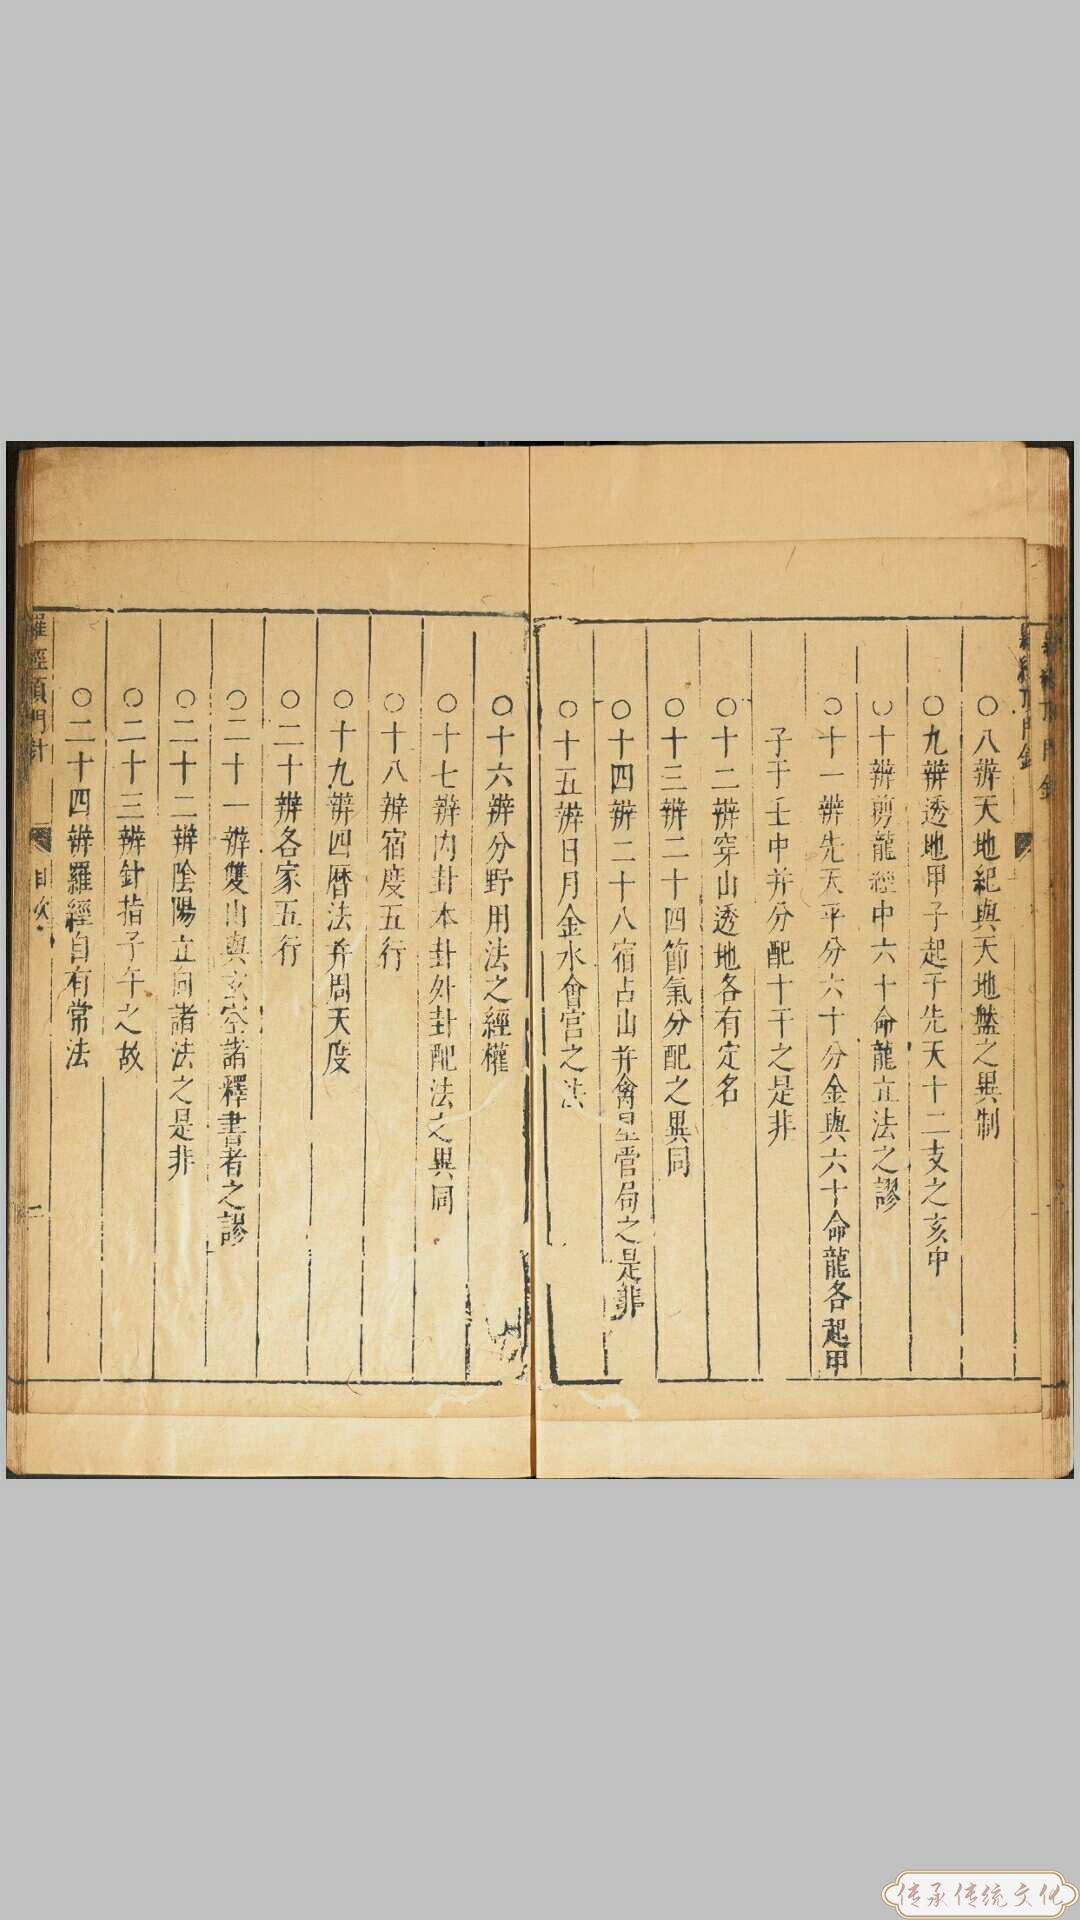 ○八辨天地紀與天地盤之異制
○九辨透地甲子起于先天十二支之亥中
○十辨剪龍經中六十命龍立法之謬
○十一辨先天平分六十分金與六十命龍各起甲
子于壬中并分配十干之是非
○十二辨穿山透地各有定名
○十三辨二十四節氣分配之異同
○十四辨二十八宿占山并禽星管局之是非
○十五辨日月金水會宮之法
○十六辨分野用法之經權
○十七辨内卦本卦外卦配法之異同
○十八辨宿度五行
○十九辨四曆法并周天度
○二十辨各家五行
○二十一辨雙山與玄空諸釋書者之謬
○二十二辨陰陽立向諸法之是非
○二十三辨針指子午之故
○二十四辨羅經自有常法
羅經頂門針
目次
二
传承传统文化